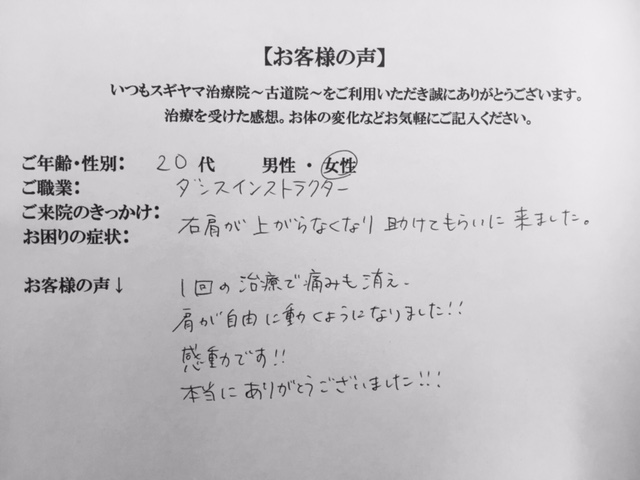 【お客様の声】
いつもスギヤマ治療院～古道院～をご利用いただき誠にありがとうございます。
治療を受けた感想。お体の変化などお気軽にご記入ください。
ご年齢・性別： 20代 男性・女性
ご職業： ダンスインストラクター
ご来院のきっかけ：
お困りの症状： 右肩が上がらなくなり助けてもらいに来ました。
お客様の声↓ 1回の治療で痛みも消え、
肩が自由に動くようになりました!!
感動です!!
本当にありがとうございました!!!